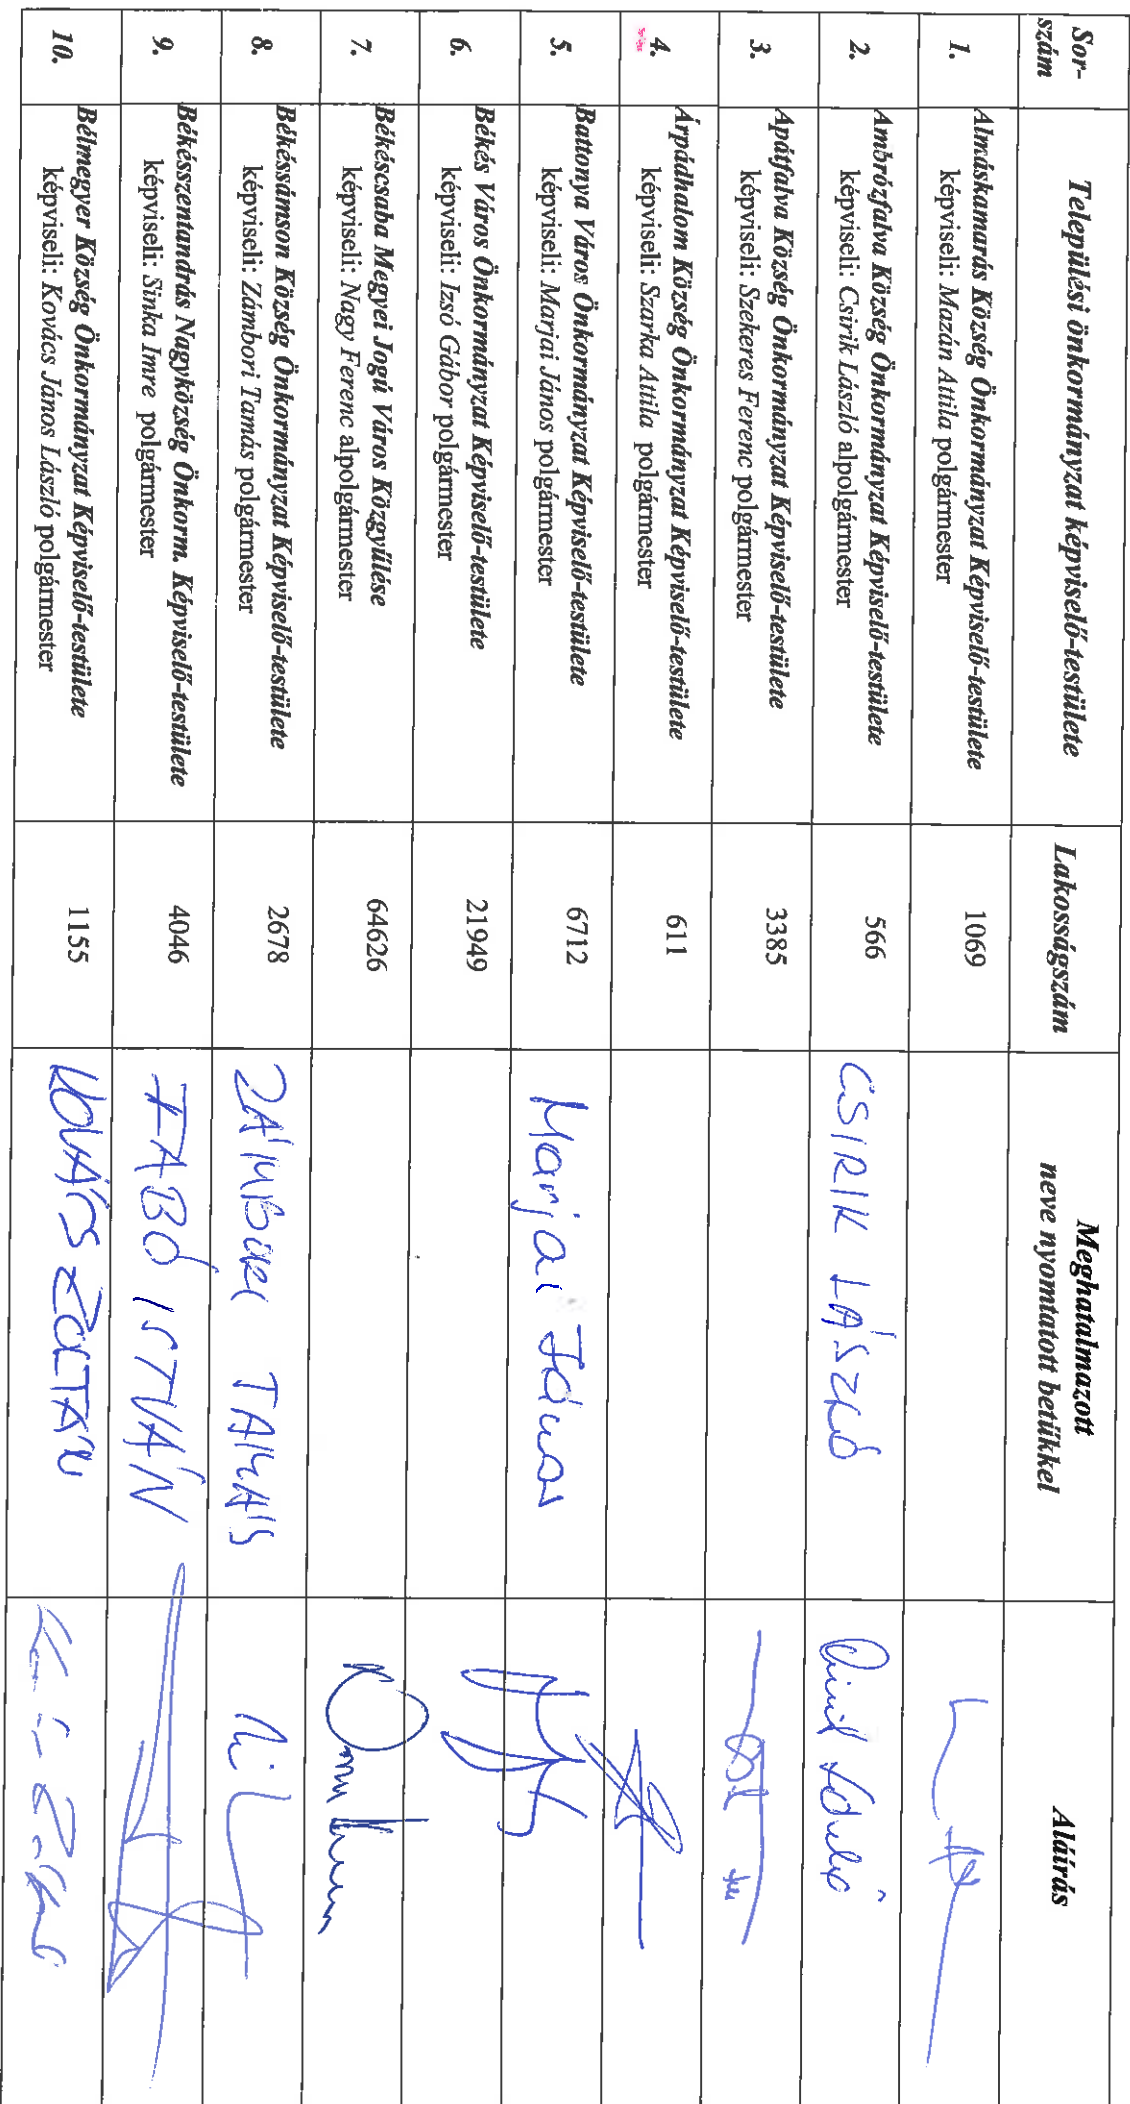 Sor-
szám
Települési önkormányzat képviselő-testülete
Lakosságszám
Meghatalmazott
neve nyomtatott betűkkel
Aláírás
1.
Almáskamarás Község Önkormányzat Képviselő-testülete
képviseli: Mazán Attila polgármester
1069
2.
Ambrózfalva Község Önkormányzat Képviselő-testülete
képviseli: Csirik László alpolgármester
566
CSIRIK LÁSZLÓ
3.
Apátfalva Község Önkormányzat Képviselő-testülete
képviseli: Szekeres Ferenc polgármester
3385
4.
Árpádhalom Község Önkormányzat Képviselő-testülete
képviseli: Szarka Attila polgármester
611
5.
Battonya Város Önkormányzat Képviselő-testülete
képviseli: Marjai János polgármester
6712
Marjai János
6.
Békés Város Önkormányzat Képviselő-testülete
képviseli: Izsó Gábor polgármester
21949
7.
Békéscsaba Megyei Jogú Város Közgyűlése
képviseli: Nagy Ferenc alpolgármester
64626
8.
Békéssámson Község Önkormányzat Képviselő-testülete
képviseli: Zámbori Tamás polgármester
2678
ZÁMBORI TAMÁS
9.
Békésszentandrás Nagyközség Önkorm. Képviselő-testülete
képviseli: Sinka Imre polgármester
4046
FABÓ ISTVÁN
10.
Bélmegyer Község Önkormányzat Képviselő-testülete
képviseli: Kovács János László polgármester
1155
KOVÁCS ZOLTÁN